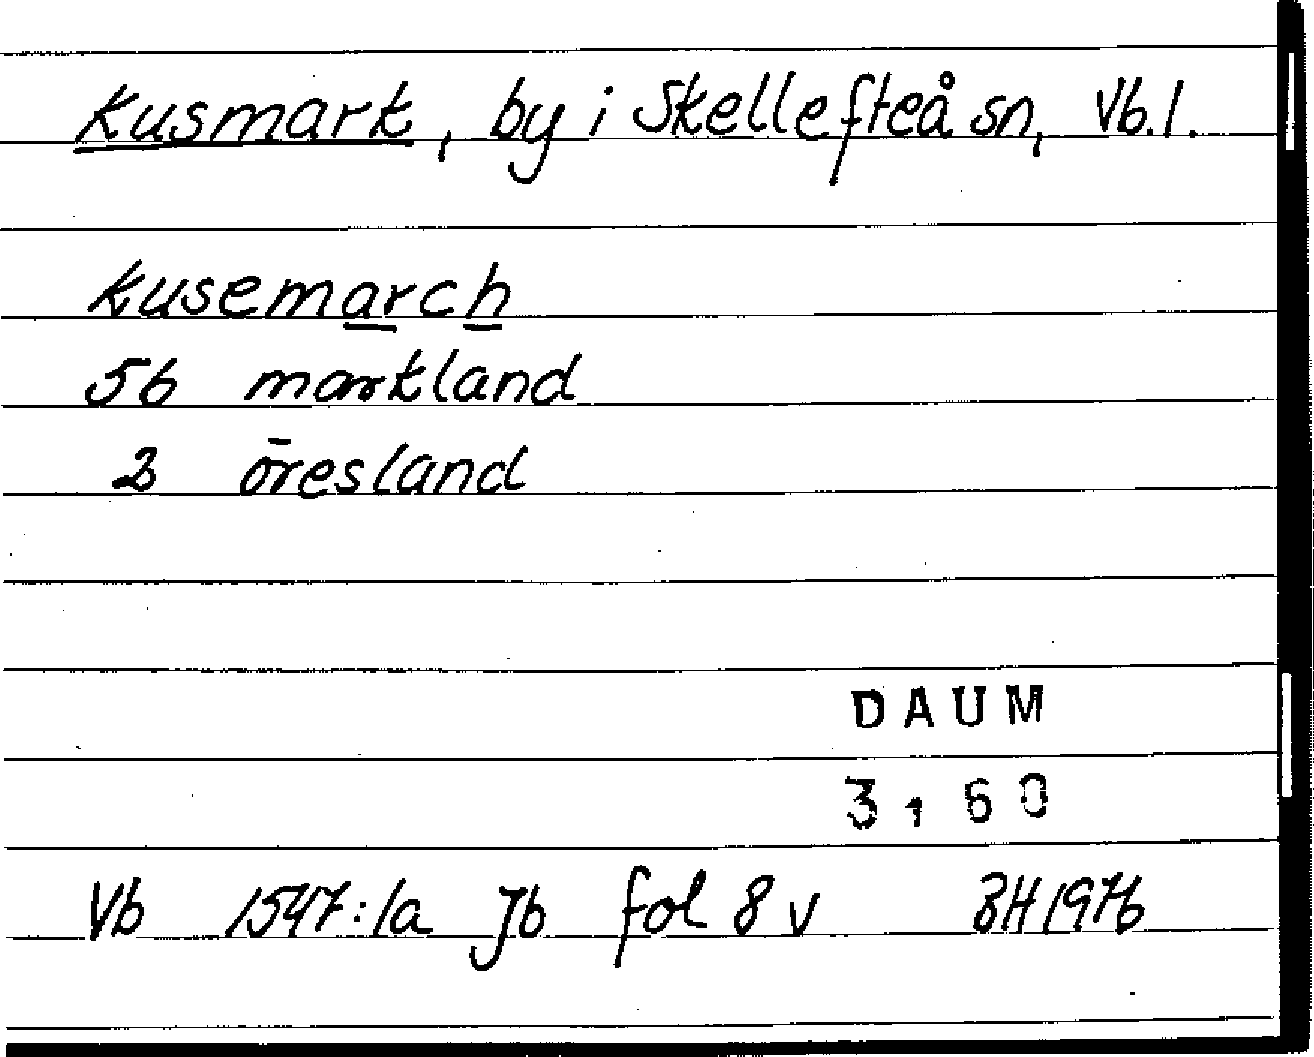 Kusmark, by i Skellefteå sn, Vb.l.
Kusemarch
56 markland
2 öresland
DAUM
3160
Vb 1547:1a Jb fol 8 v BH 1976